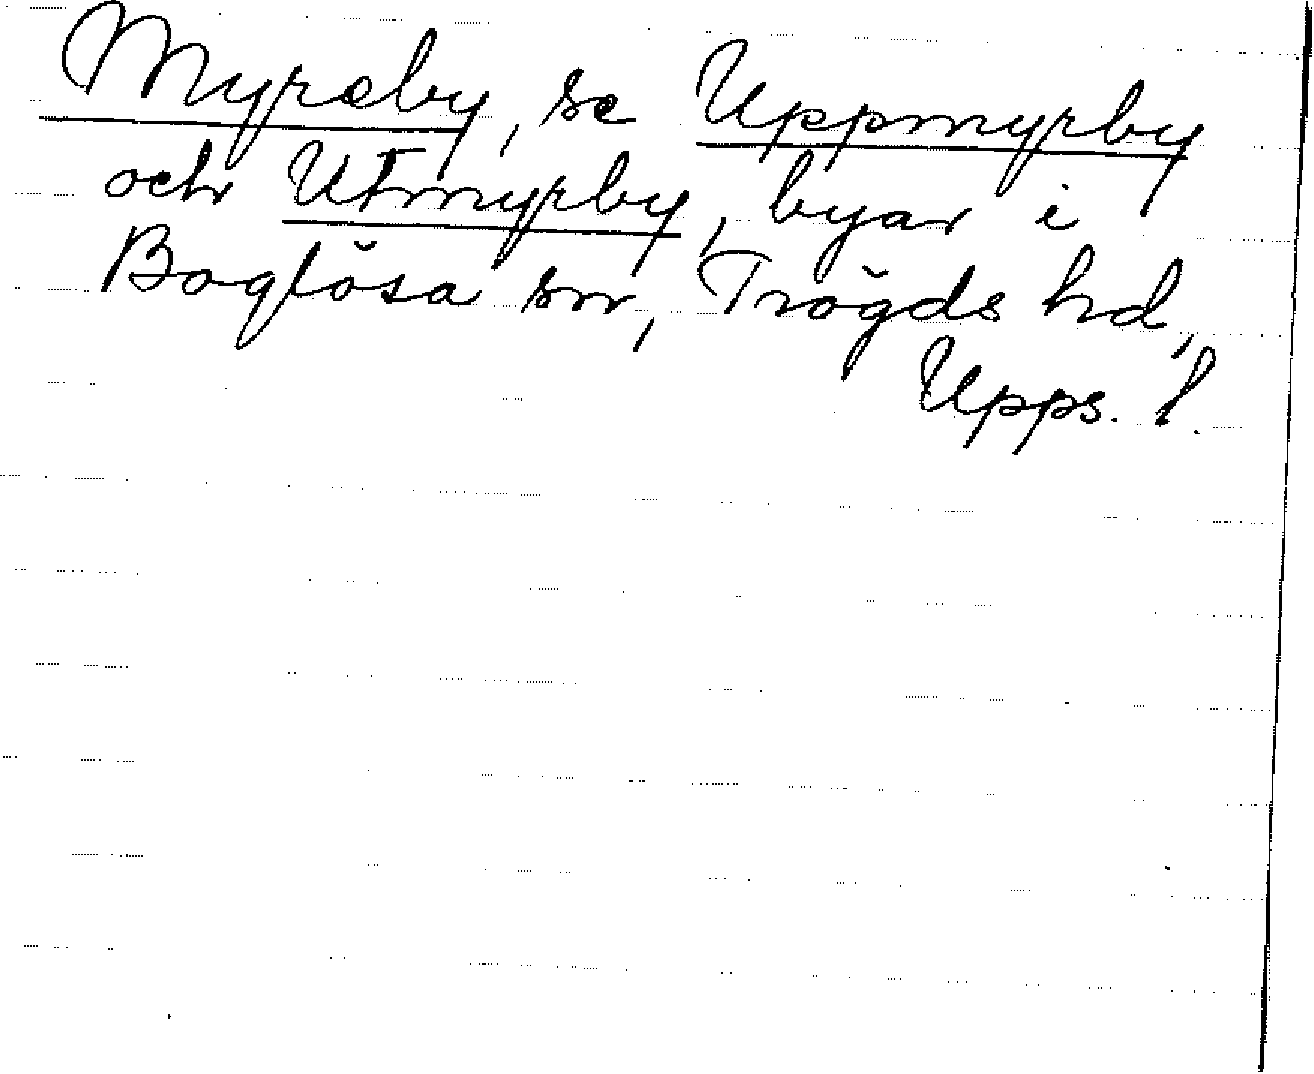 Myræby, se Uppmyrby
och Utmyrby, byar i
Boglösa sn, Trögds hd,
Upps. l.